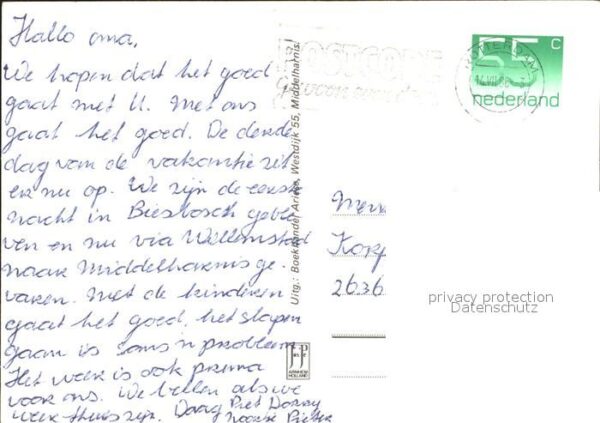 Hallo oma,
We hopen dat het goed
gaat met U. Met ons
gaat het goed. De derde
dag van de vakantie zit
er nu op. We zijn de eerste
nacht in Biesbosch geble
ven en nu via Willemstad
naar Middelharnis ge
varen. Met de kinderen
gaat het goed, het slapen
gaan is soms 'n probleem
Het weer is ook prima
voor ons. We bellen als we
weer thuis zijn. Daag Piet Dorry
Uitg.: Boekhandel Westdijk 55, Middelharnis.
JP
ARNHEM
HOLLAND
POSTCODE
ROTTERDAM
55 c
nederland
Mevr
Korp
2636
privacy protection
Datenschutz